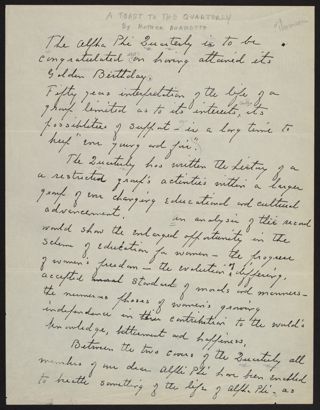 A TOAST TO THE QUARTERLY
By Mother Burdette
The Alpha Phi Quarterly is to be
congratulated on having attained its
Golden Birthday.
Fifty years interpretation of the life of a
group limited as to its interests, its
possibilities of support - is a long time to
keep "ever young and fair".
The Quarterly has written the history of a
a restricted group's activities within a larger
group of ever changing educational and cultural
advancement. an analysis of this record
would show the enlarged opportunity in the
scheme of education for women - the progress
of women's freedom - the evolution of differing
accepted standard of morals and manners -
the numerous phases of women's growing
independance in their contribution to the world's
knowledge, betterment and happiness.
Between the two covers of the Quarterly all
members of our dear Alpha Phi have been enabled
to breathe something of the life of Alpha Phi - as